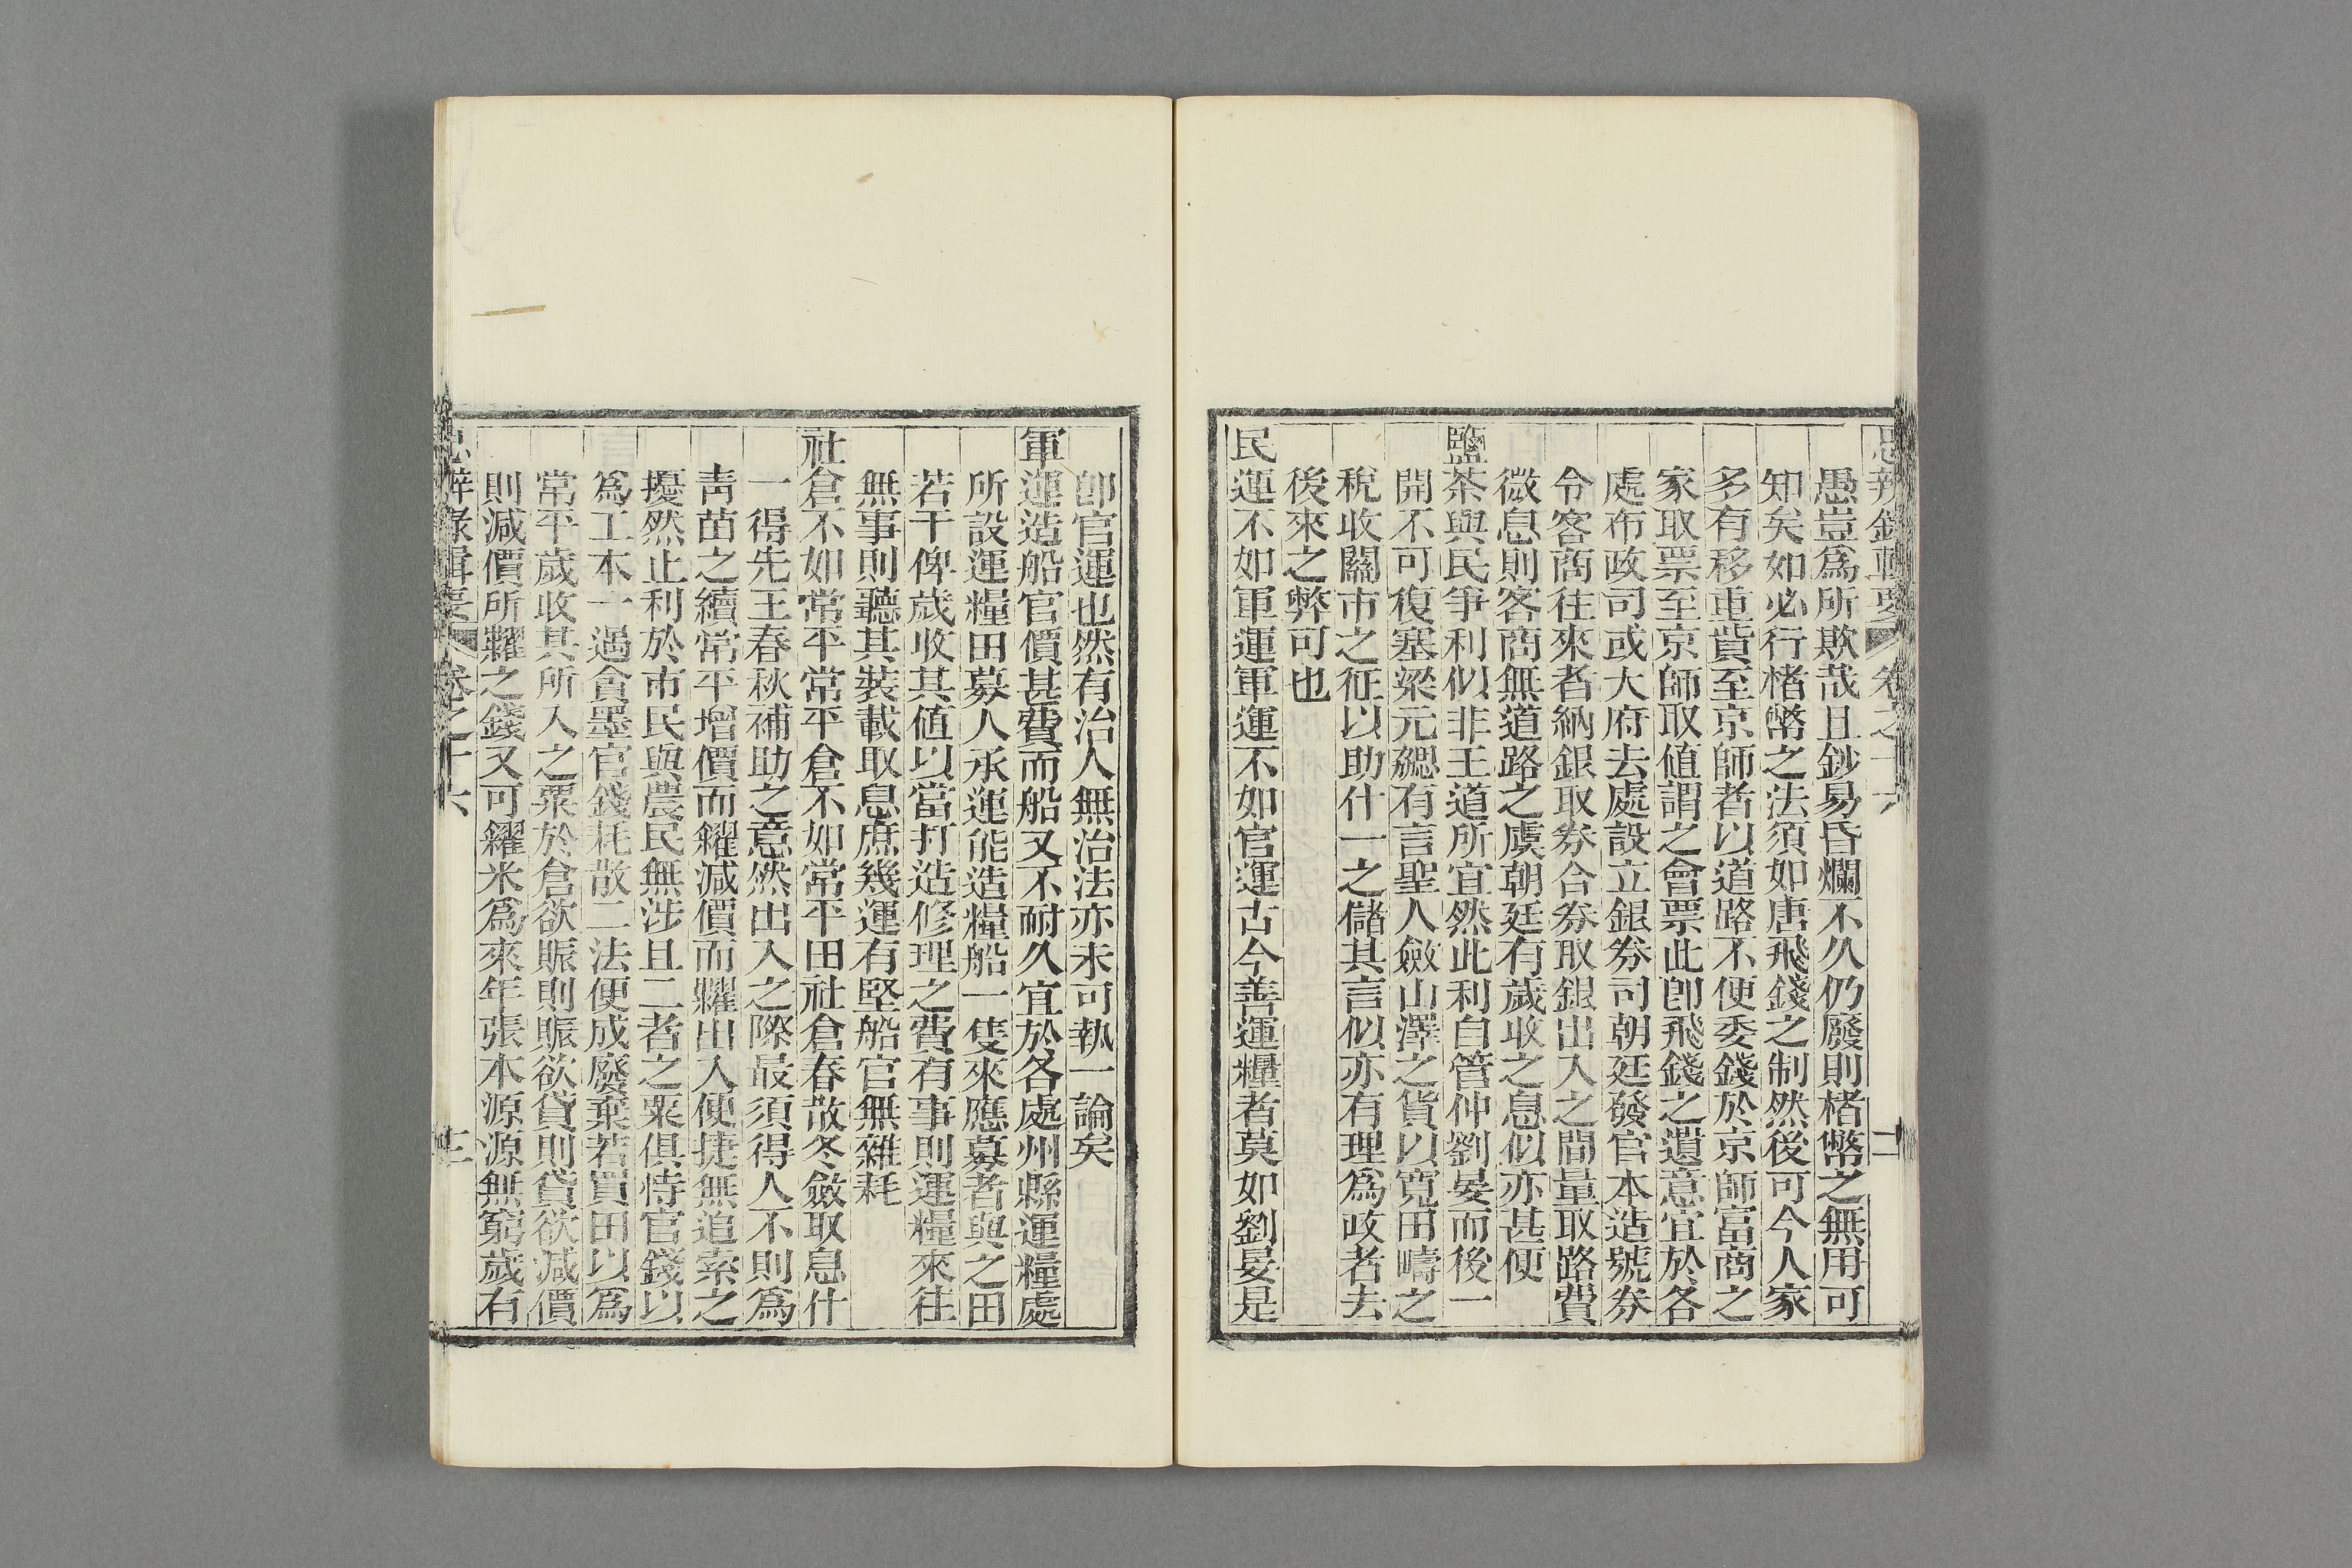 思辨錄輯要 卷之十六 二
愚豈爲所欺哉且鈔易昏爛不久仍廢則楮幣之無用可
知矣如必行楮幣之法須如唐飛錢之制然後可今人家
多有移重貲至京師者以道路不便委錢於京師富商之
家取票至京師取值謂之會票此卽飛錢之遺意宜於各
處布政司或大府去處設立銀券司朝廷發官本造號券
令客商往來者納銀取券合券取銀出入之間量取路費
微息則客商無道路之虞朝廷有歲收之息似亦甚便
鹽茶與民爭利似非王道所宜然此利自管仲劉晏而後一
開不可復塞梁元勰有言聖人斂山澤之貨以寬田疇之
稅收關市之征以助什一之儲其言似亦有理爲政者去
後來之弊可也
民運不如軍運軍運不如官運古今善運糧者莫如劉晏是
卽官運也然有治人無治法亦未可執一論矣
軍運造船官價甚費而船又不耐久宜於各處州縣運糧處
所設運糧田募人承運能造糧船一隻來應募者與之田
若干俾歲收其值以當打造修理之費有事則運糧來往
無事則聽其裝載取息庶幾運有堅船官無雜耗
社倉不如常平常平倉不如常平田社倉春散冬斂取息什
一得先王春秋補助之意然出入之際最須得人不則爲
靑苗之續常平增價而糴減價而糶出入便捷無追索之
擾然止利於市民與農民無涉且二者之粟俱恃官錢以
爲工本一遇貪墨官錢耗散二法便成廢棄若買田以爲
常平歲收其所入之粟於倉欲賑則賑欲貸則貸欲減價
則減價所糶之錢又可糴米爲來年張本源源無窮歲有
思辨錄輯要 卷之十六 三